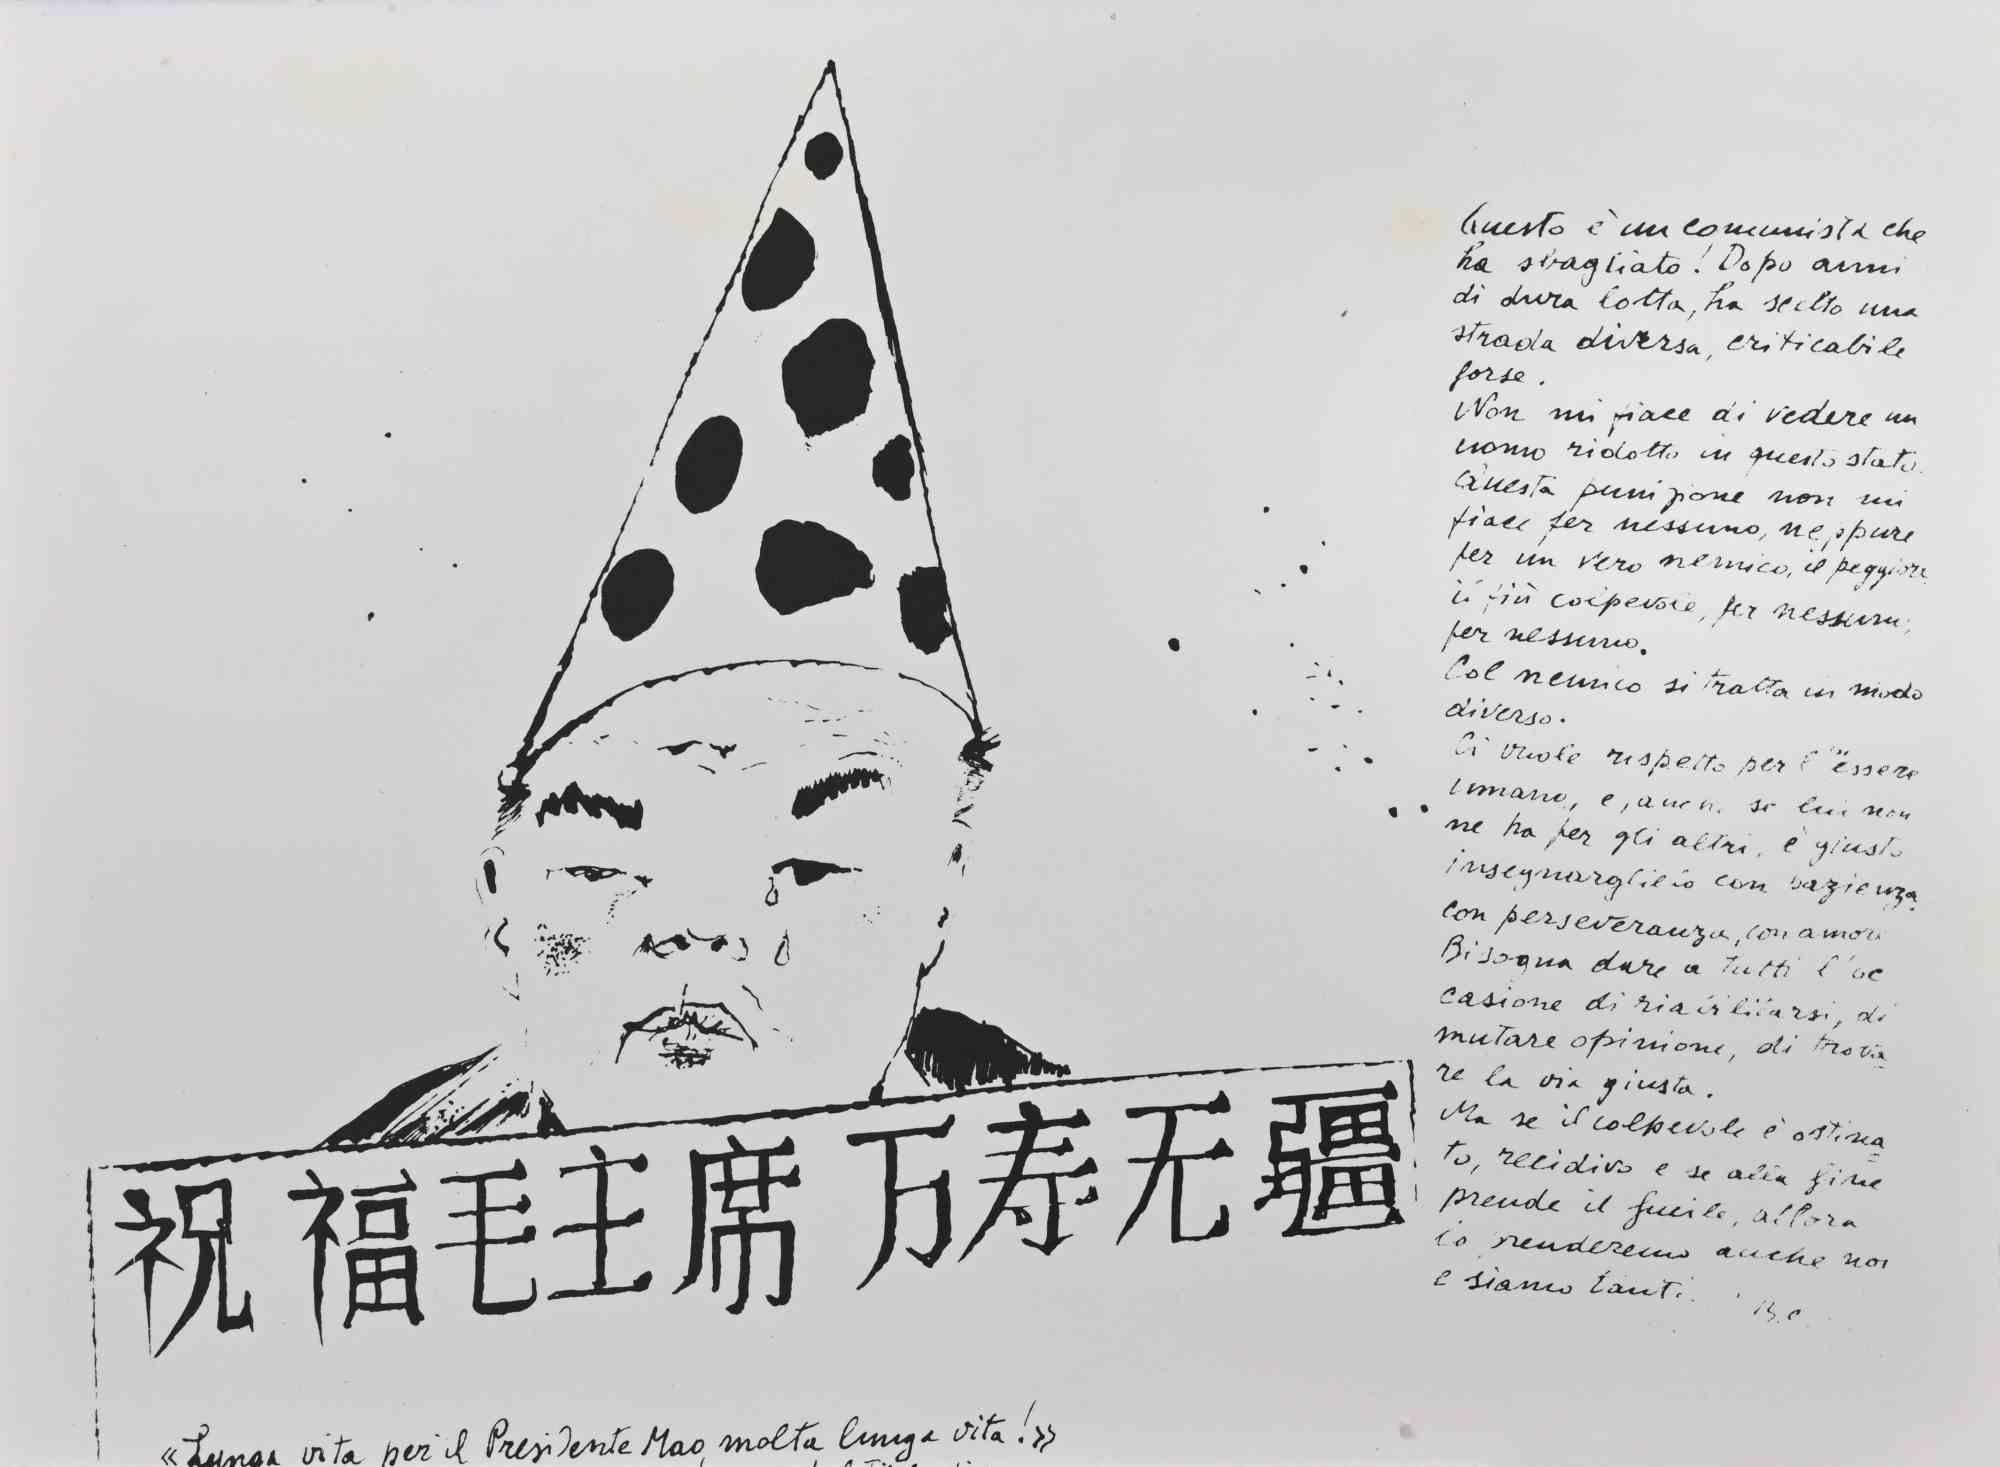 Questo è un comunista che
ha sbagliato! Dopo anni
di dura lotta, ha scelto una
strada diversa, criticabile
forse.
Non mi piace di vedere un
uomo ridotto in questo stato.
Questa punizione non mi
piace per nessuno, neppure
per un vero nemico, il peggiore
il più colpevole, per nessuno,
per nessuno.
Col nemico si tratta in modo
diverso.
Ci vuole rispetto per l'essere
umano, e, anche se lui non
ne ha per gli altri, è giusto
insegnarglielo con pazienza
con perseveranza, con amore
Bisogna dare a tutti l'oc
casione di riabilitarsi, di
mutare opinione, di trova
re la via giusta.
Ma se il colpevole è ostina
to, recidivo e se alla fine
prende il fucile, allora
lo prenderemo anche noi
e siamo tanti. B.C.
祝福毛主席 万寿无疆
«Lunga vita per il Presidente Mao, molta lunga vita!»